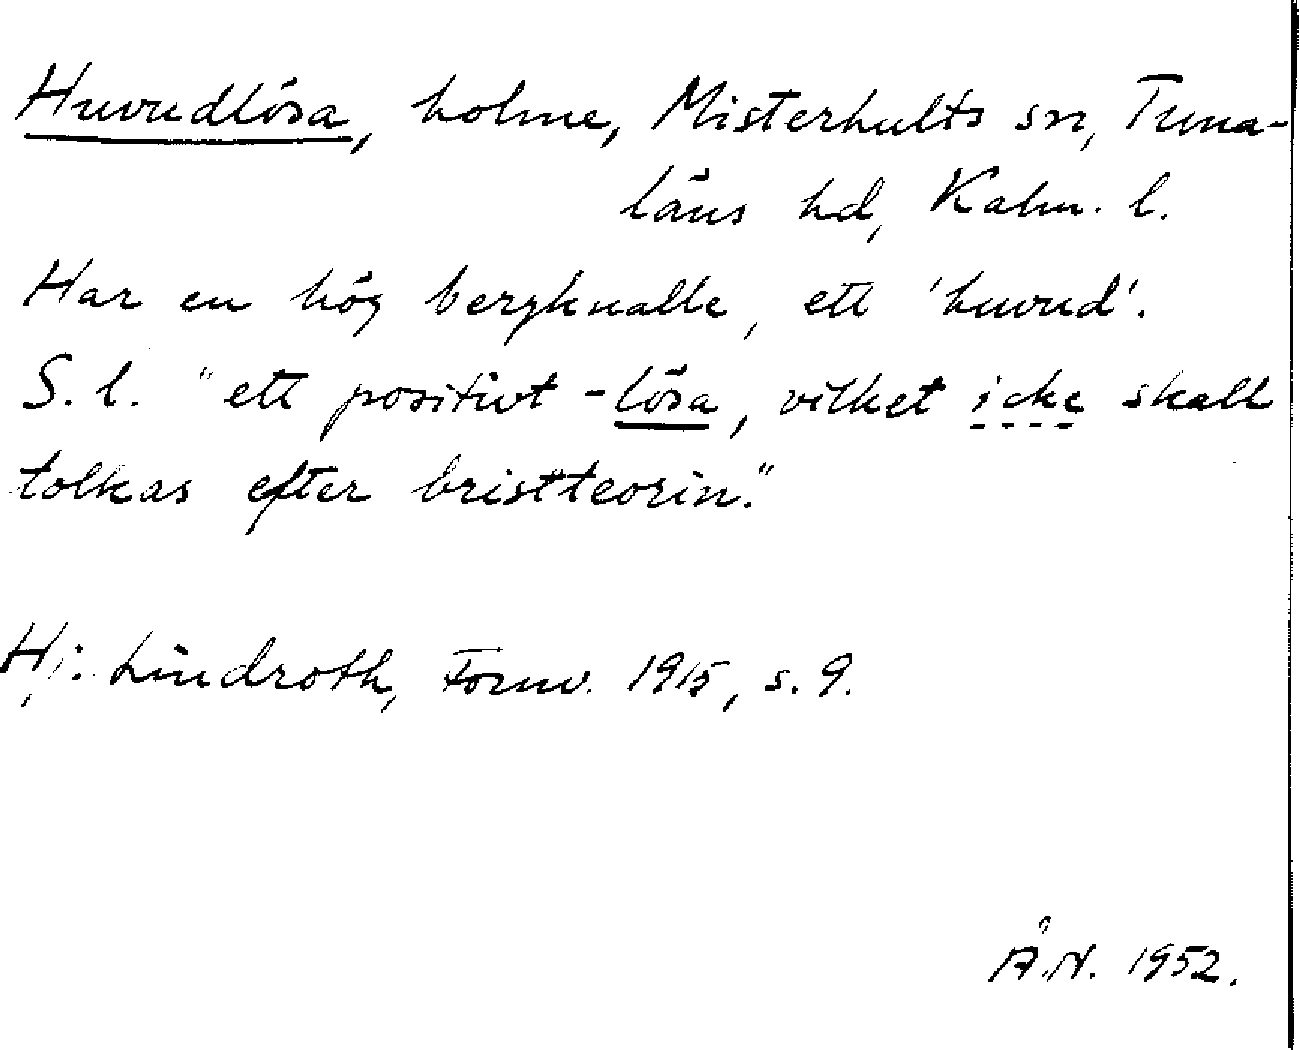 Huvudlösa, holme, Misterhults sn, Tuna-
läns hd, Kalm. l.
Har en hög bergknalle, ett 'huvud'.
S. l. "ett positivt -lösa, vilket icke skall
tolkas efter bristteorin."
Hj. Lindroth, Fornv. 1915, s. 9.
Å.N. 1952.